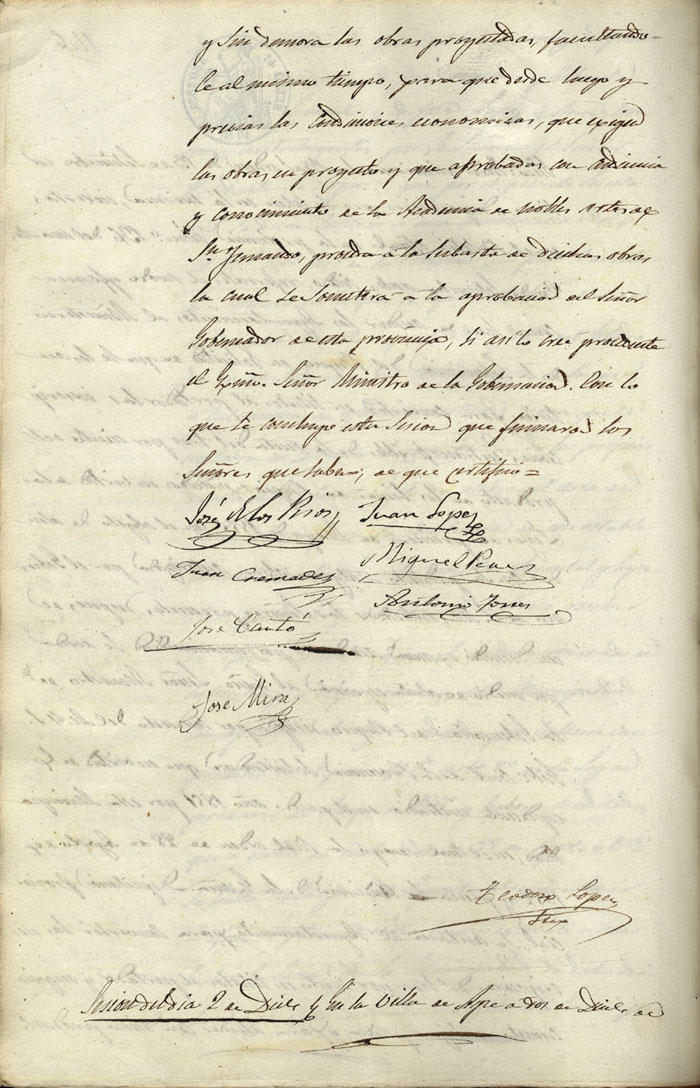 y sin demora las obras proyectadas, facultando-
le al mismo tiempo, para que desde luego y
previas las condiciones economicas, que exigen
las obras en proyecto y que aprobadas con audiencia
y conocimiento de la Academia de nobles artes de
Sn. Fernando, proceda a la subasta de dichas obras,
la cual se someterá a la aprobacion del Señor
Gobernador de esta provincia, si asi lo cree procedente
el Exmo. Señor Ministro de la Gobernacion. Con lo
que se concluyo esta sesion que firmaron los
Señores que saben, de que certifico=
José de los Rios Juan Lopez
Juan Cremades Miguel Perez
Antonio
José Cantó
Jose Mira
Teodoro Lopez
Srio
Sesion del dia 2 de Dicbe. En la Villa de Aspe a dos de Dicbe. de